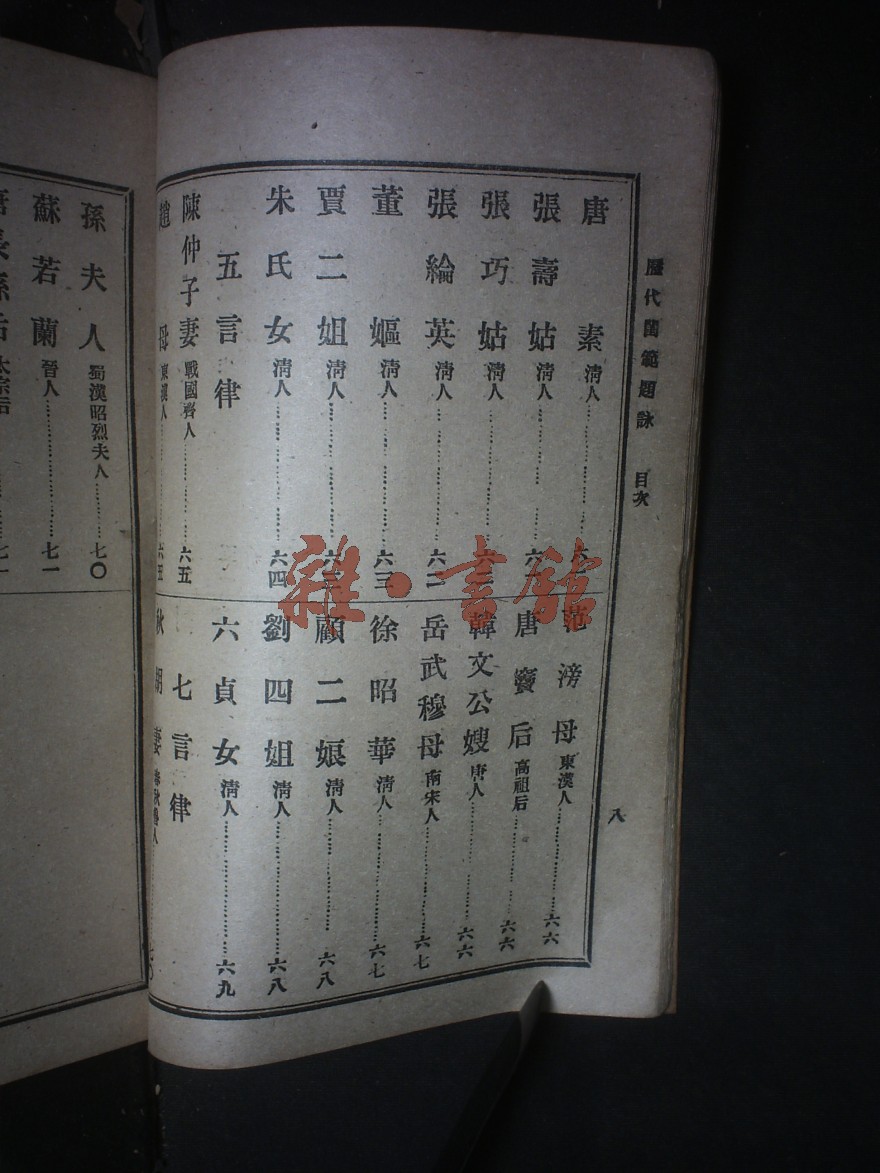 歷代閨範題詠 目次
八
唐素 清人
張壽姑 清人 六
張巧姑 清人
張綸英 清人 六二
董嫗 清人 六三
賈二姐 清人 六三
朱氏女 清人 六四
五言律
陳仲子妻 戰國齊人 六五
趙母 東漢人 六五
范滂母 東漢人 六六
唐竇后 高祖后 六六
韓文公嫂 唐人 六六
岳武穆母 南宋人 六七
徐昭華 清人 六七
顧二娘 清人 六八
劉四姐 清人 六八
六貞女 清人 六九
七言律
秋胡妻 春秋魯人 七〇
孫夫人 蜀漢昭烈夫人 七〇
蘇若蘭 晉人 七一
唐長孫后 太宗后 七一
雜·書館